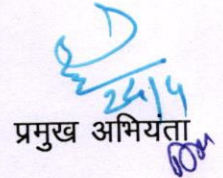 24/4
प्रमुख अभियंता